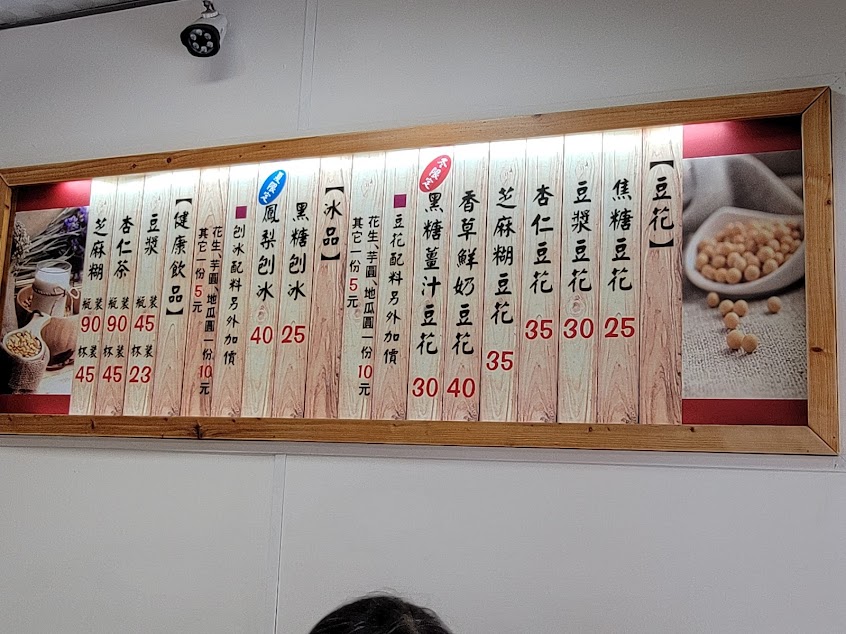 【豆花】
焦糖豆花 25
豆漿豆花 30
杏仁豆花 35
芝麻糊豆花 35
香草鮮奶豆花 40
冬限定
黑糖薑汁豆花 30
■豆花配料另外加價
花生、芋圓、地瓜圓一份10元
其它一份5元
【冰品】
黑糖刨冰 25
夏限定
鳳梨刨冰 40
■刨冰配料另外加價
花生、芋圓、地瓜圓一份10元
其它一份5元
【健康飲品】
豆漿 瓶裝45 杯裝23
杏仁茶 瓶裝90 杯裝45
芝麻糊 瓶裝90 杯裝45